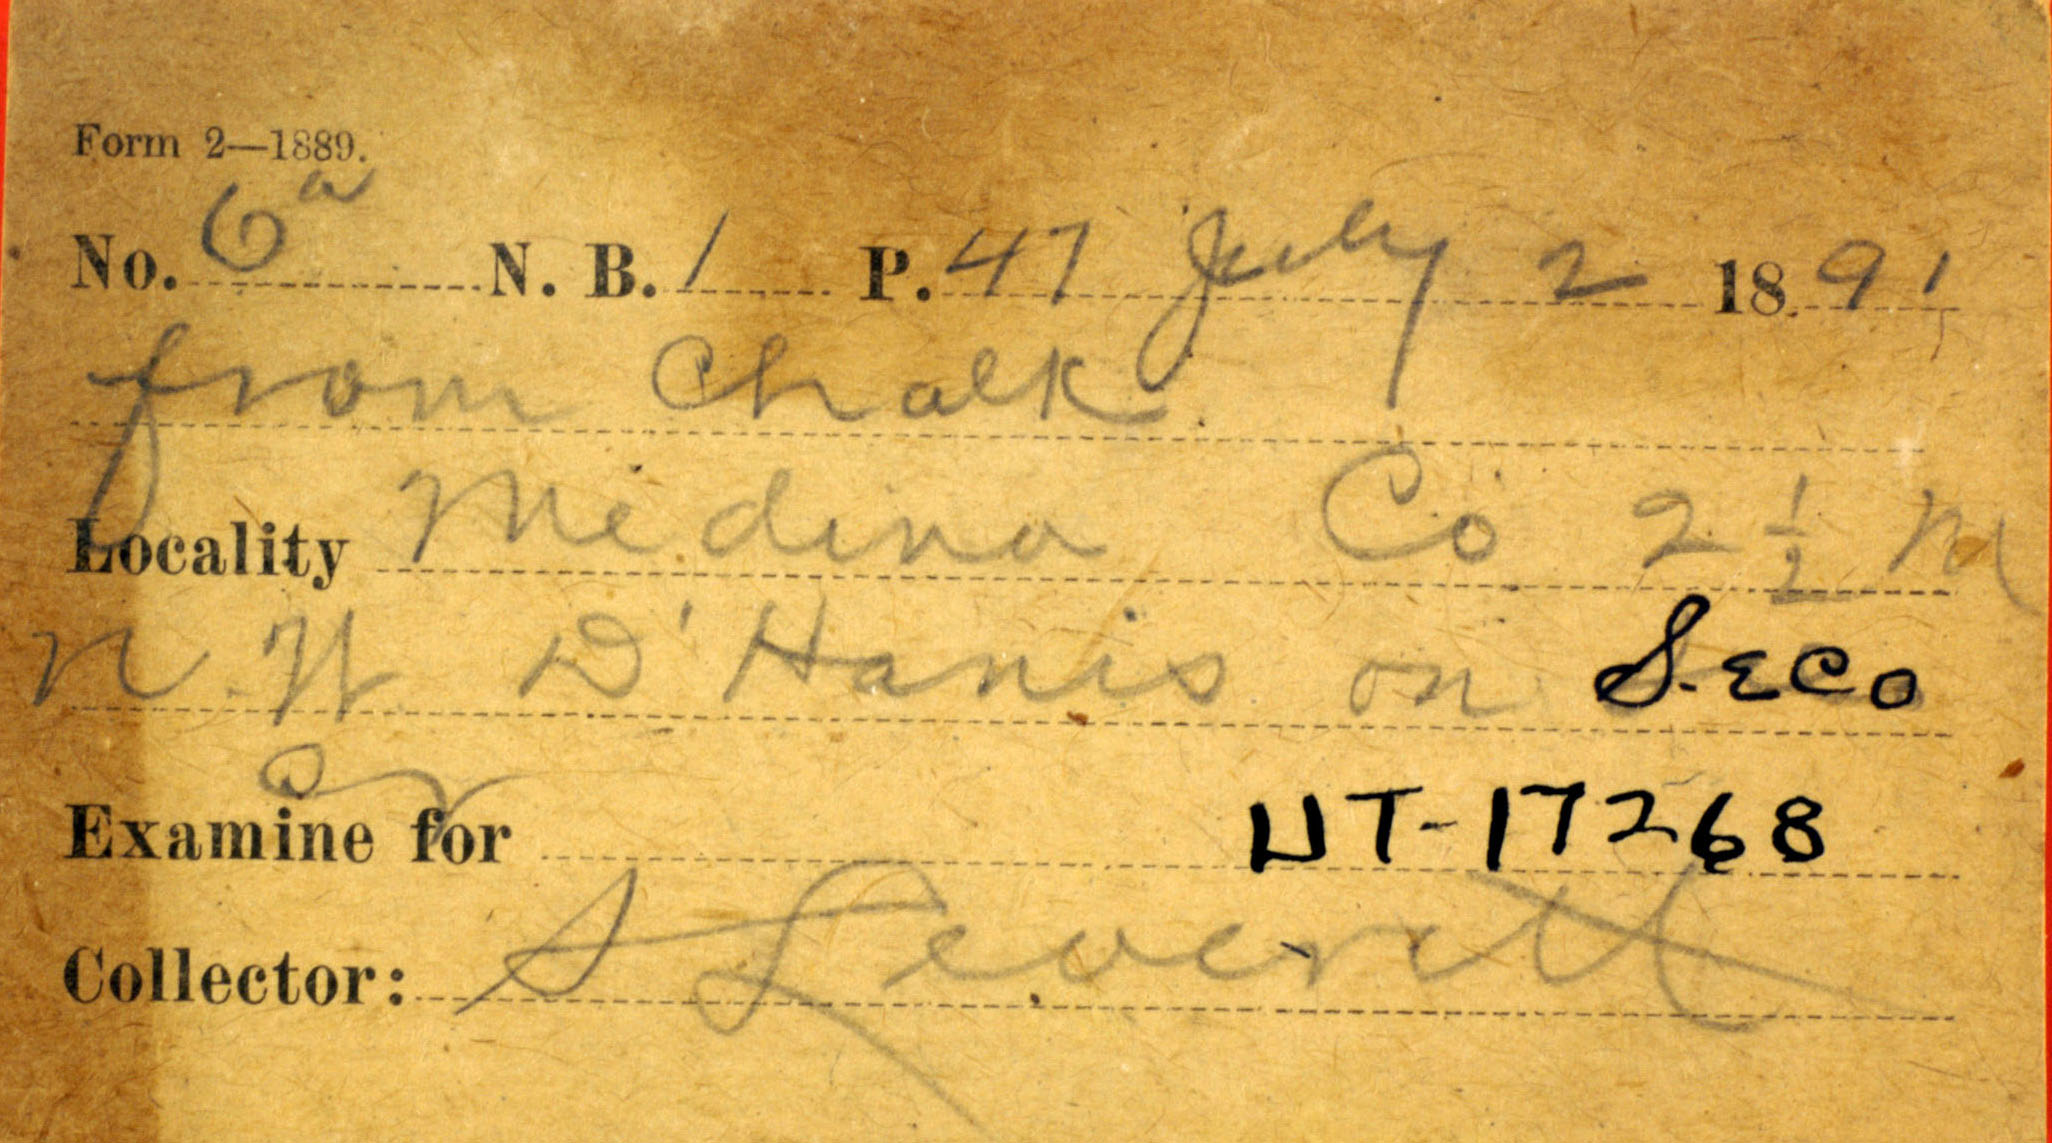 Form 2—1889.
No. 6a N. B. 1 P. 47 July 2 18 91
from Chalk
Locality Medina Co 2 1/2 M
N.W D'Hanis on Seco
Examine for UT-17268
Collector: S Leverett